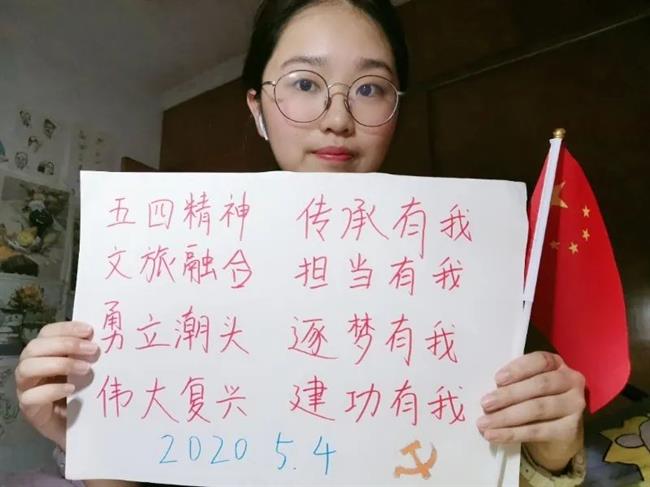 五四精神 传承有我
文旅融合 担当有我
勇立潮头 逐梦有我
伟大复兴 建功有我
2020 5.4